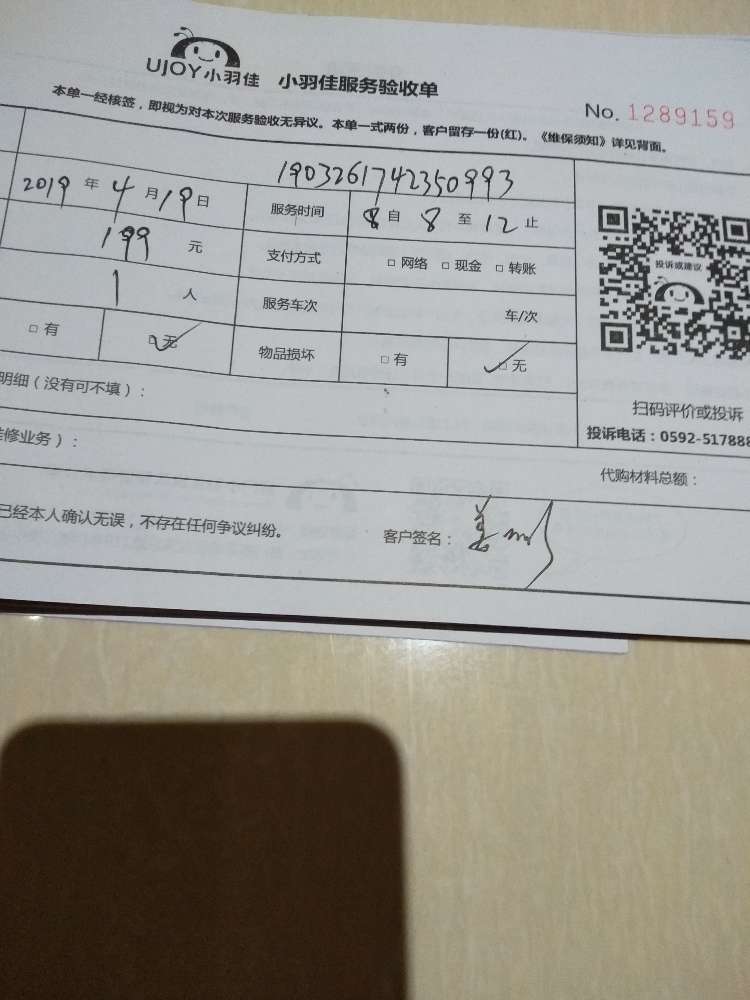 UJOY小羽佳 小羽佳服务验收单
No. 1289159
本单一经核签，即视为对本次服务验收无异议。本单一式两份，客户留存一份(红)。《维保须知》详见背面。
1903261742350993
2019 年 4 月 19 日 服务时间 自 8 至 12 止
投诉或建议
199 元 支付方式 □ 网络 □ 现金 □ 转账
1 人 服务车次 车/次
□ 有 □ 无 物品损坏 □ 有 □ 无
明细（没有可不填）：
扫码评价或投诉
投诉电话：0592-517888
修业务）：
代购材料总额：
已经本人确认无误，不存在任何争议纠纷。 客户签名：